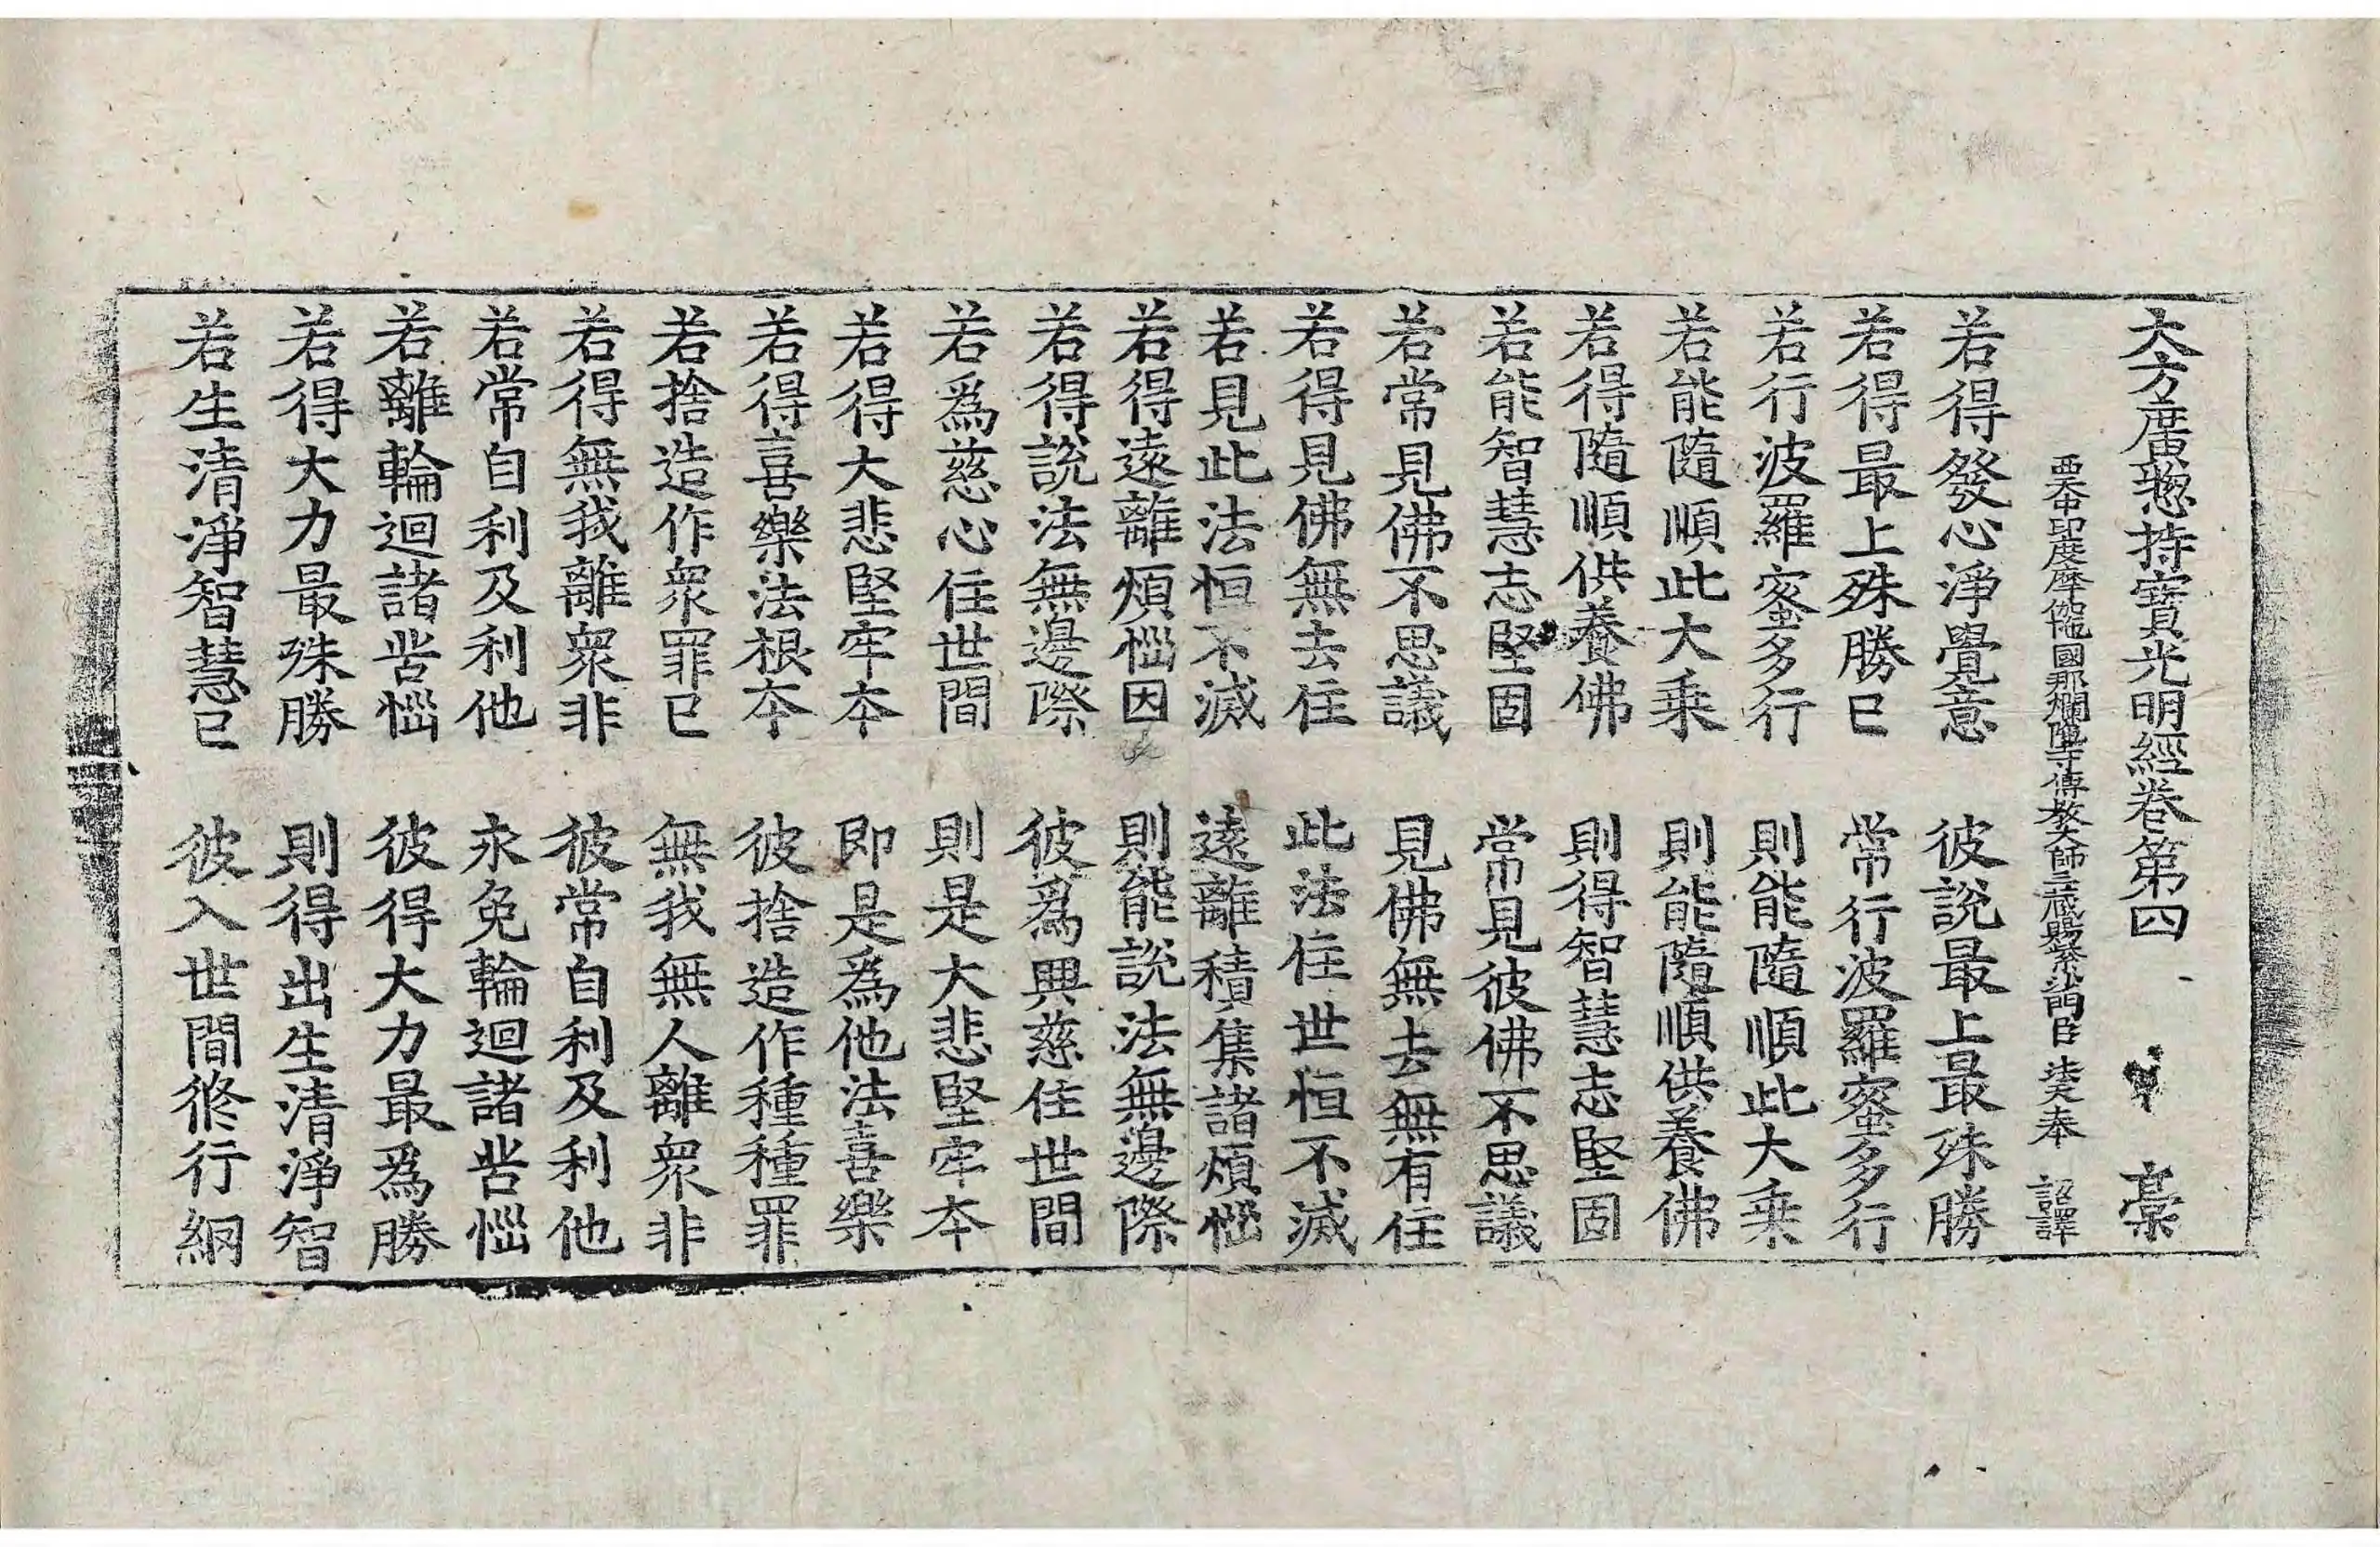 大方廣緫持寳光明經卷第四 㐮
西天中印度摩伽陁國那爛陁寺傳教大師三蔵賜紫沙門臣 法天奉 詔譯
若得發心淨覺意 彼說最上最殊勝
若得最上殊勝已 常行波羅蜜多行
若行波羅蜜多行 則能隨順此大乗
若能隨順此大乗 則能隨順供養佛
若得隨順供養佛 則得智慧志堅固
若能智慧志堅固 常見彼佛不思議
若常見佛不思議 見佛無去無有住
若得見佛無去住 此法住世恒不滅
若見此法恒不滅 遠離積集諸煩惱
若得遠離煩惱因 則能說法無邊際
若得說法無邊際 彼爲興慈住世間
若爲慈心住世間 則是大悲堅牢本
若得大悲堅牢本 即是爲他法喜樂
若得喜樂法根本 彼捨造作種種罪
若捨造作衆罪已 無我無人離衆非
若得無我離衆非 彼常自利及利他
若常自利及利他 永免輪迴諸苦惱
若離輪迴諸苦惱 彼得大力最爲勝
若得大力最殊勝 則得出生清淨智
若生清淨智慧已 彼入世間修行網